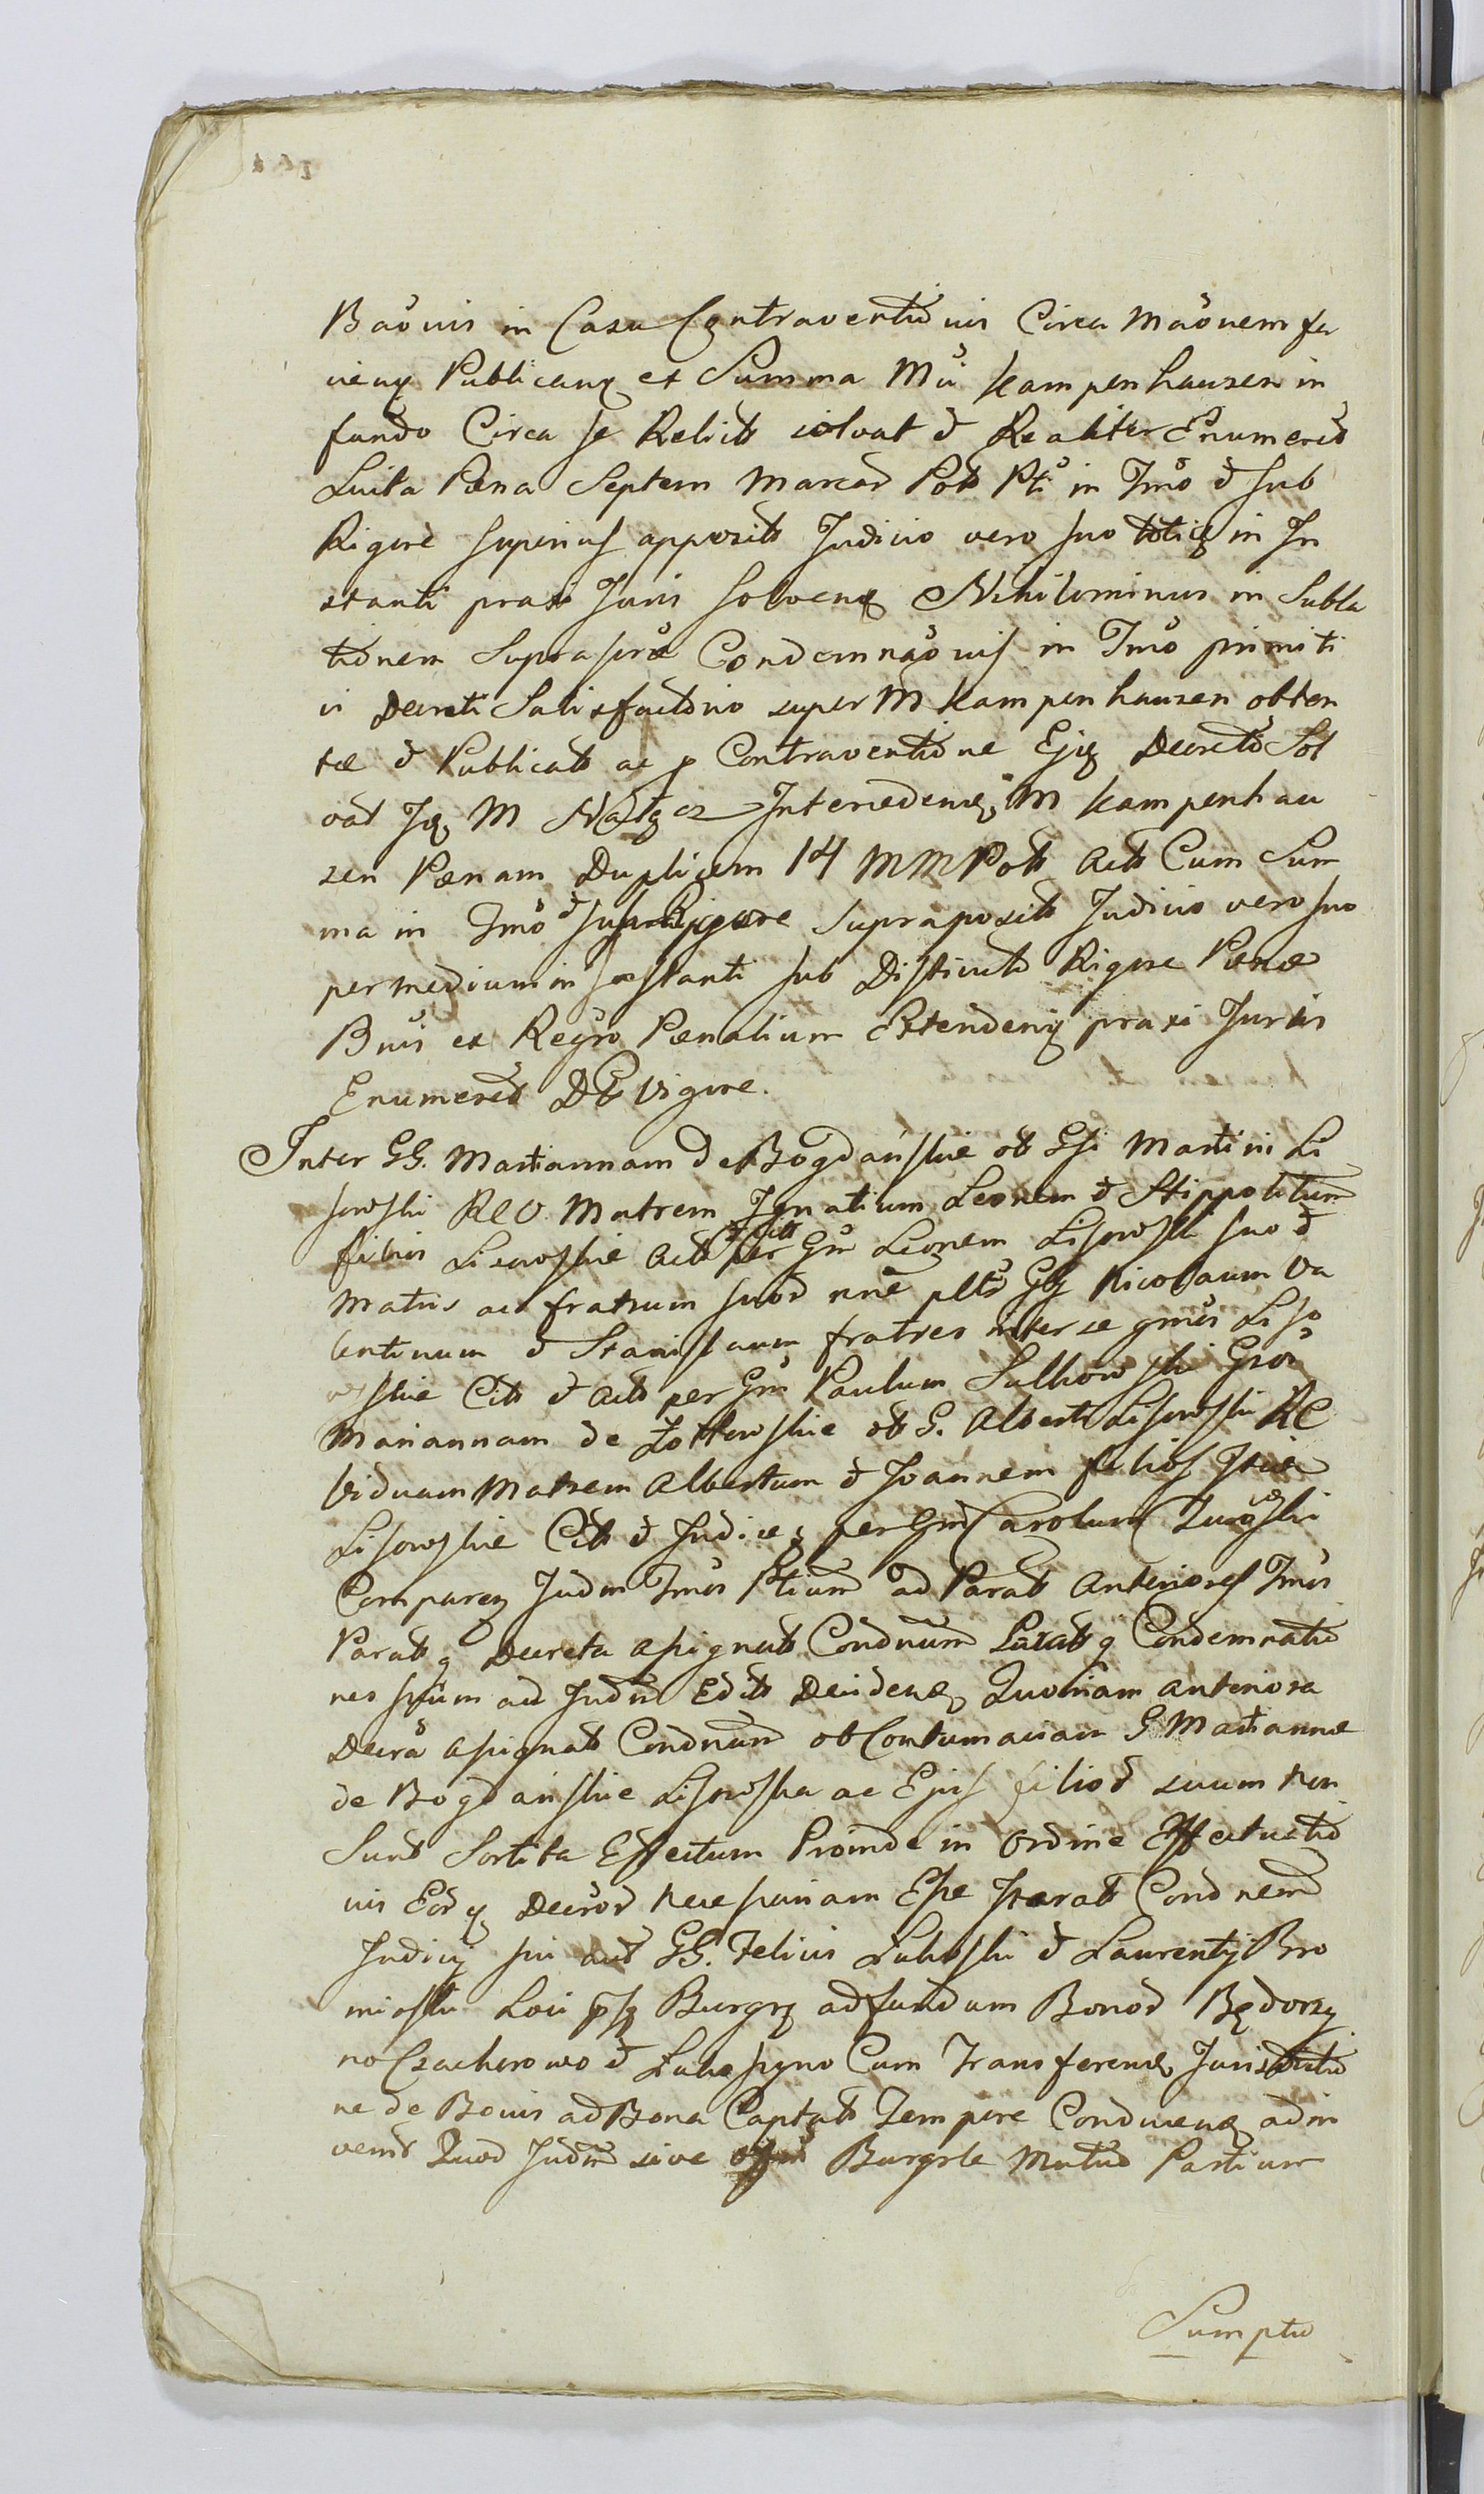 Baönis in Casu Contraventiönis Circa Maönem fa
cieng Publicang et Summa Mci Kampenhauzen in
fundo Circa se Relicta solvat et Realiter Enumeret
Luita Pœna Septem Marcar Pol Pti in Tmo et sub
Rigore superius apposito Judicio vero suo toties in In
stanti praxi Juris Solveng Nihilominus in Subla
tiönem Suprascrae Condemnaönis in Tmo primiti
vi Decreti Satisfactorio super M Kampenhauzen obten
tæ et Publicatæ ac p Contraventione Ejq Decreti Sol
vat Iq M Intercedeng M Kampenhau
zen Pœnam Duplicem 14 MM Pol Acto Cum Sum
ma in Tmo et sub Rigore Supraposito Judicio vero suo
per medium in Instanti sub Districto Rigore Pœnæ
Bnis ex Regro Pœnalium Extendeng praxi Juris
Enumeret D Vigore.
Inter GG. Mariannam de Bogdańskie olt Gsi Martini Li
sowski REV Matrem Ignatium Leonem et Hippolitum
filios Lisowskie Act et Citt per Gm Leonem Lisowski suo et
Matris ac fratrum suor nne plto Gg Nicolaum Va
lentinum et Stanislaum fratres inter se gmos Liso
wskie Cit et Act per Gm Paulum Sulkowski Gros
Mariannam de Zołtowskie olt G. Alberti Lisowski RC
Viduam Matrem Albertum et Joannem filios Itide
Lisowskie Cit et Judice per Gm Carolum
Comparen Judm Tmos Ptium ad Parat Anteriores Tmos
Parat q Decreta Assignat Condnum Latat q Condemnatio
nes sptum ad Judm Edit Decidend Quoniam anteriora
Decra Assignat Condnum ob Contumaciam G Marianne
de Bogdańskie Lisowska ac Ejus filior suum non
Sunt Sortita Effectum Proinde in Ordine Effectuatio
nis Eorq Decror necessariam Esse Iterat Condnem
Judicij sui aut GG. Felicis Lukoski et Laurentij Bro
nioski Loci psq Burgrq ad fundum Bonor Będorzy
no Czacherowo et Lubaszyno Cum Transferend Jurisdictio
ne de Bonis ad Bona Captat Tempore Conducend adin
venit Quod Judm sive Offm Burgrle Mutuo Partium
Sumptu